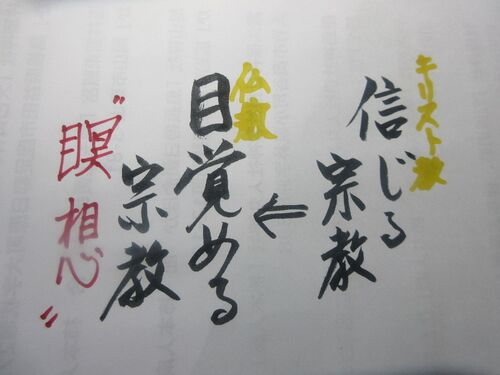 キリスト教
信じる
宗教
⇐
仏教
目覚める
宗教
"瞑想"